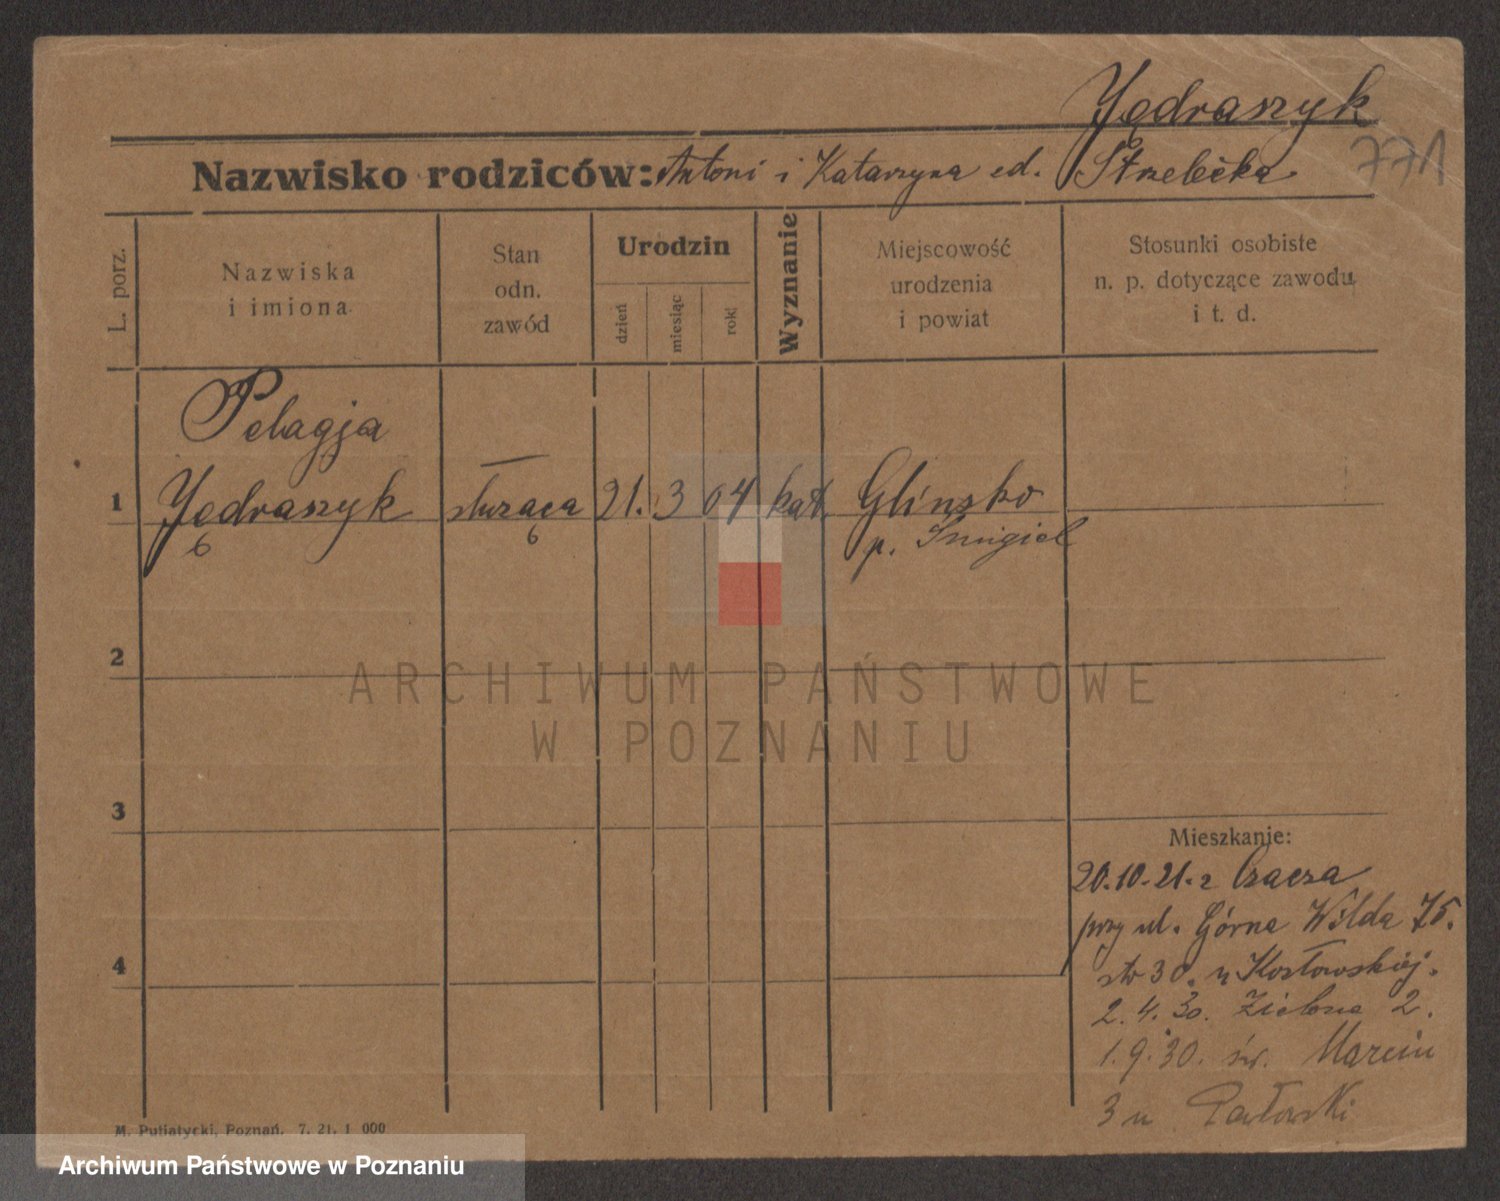 Jędraszyk
Nazwisko rodziców: Antoni i Katarzyna Strzelecka
771
L. porz.
Nazwiska
i imiona
Stan
odn.
zawód
Urodzin
dzień
miesiąc
rok
Wyznanie
Miejscowość
urodzenia
i powiat
Stosunki osobiste
n. p. dotyczące zawodu
i t. d.
Pelagja
1 Jędraszyk służąca 21. 3 04 kat. Glińsko
6 6 p. Śmigiel
2
3
4
Mieszkanie:
20.10.21. z Czacza
przy ul. Górna Wilda 75.
30. u Kozłowskiej.
2.4.30. Zielona 2.
1.9.30. św. Marcin
3 u Pawłowski
M. Putiatycki, Poznań. 7. 21. 1 000
ARCHIWUM PAŃSTWOWE
W POZNANIU
Archiwum Państwowe w Poznaniu